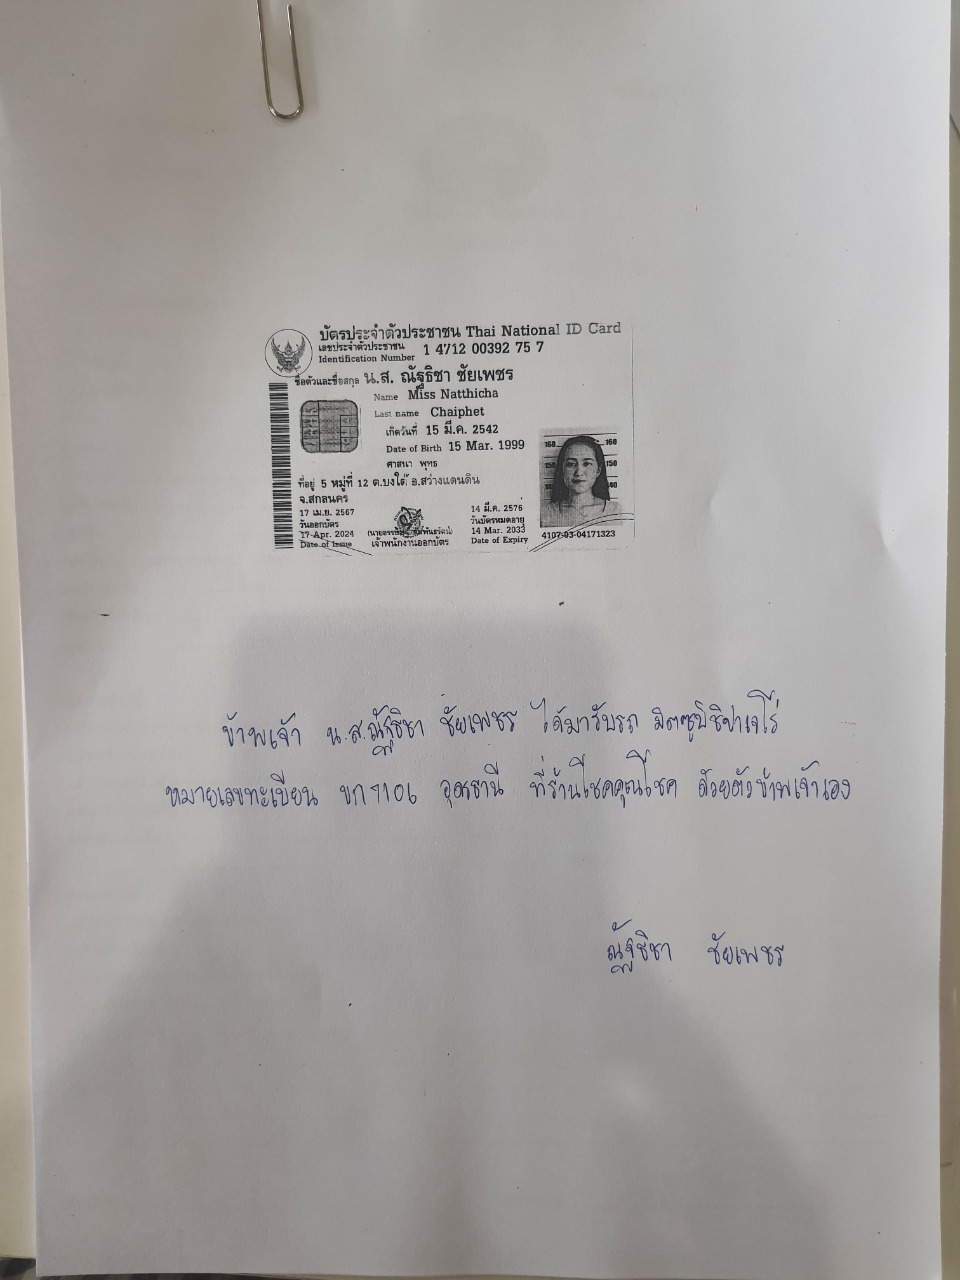 บัตรประจำตัวประชาชน Thai National ID Card
เลขประจำตัวประชาชน
Identification Number 1 4712 00392 75 7
ชื่อตัวและชื่อสกุล น.ส. ณัฐธิชา ชัยเพชร
Name Miss Natthicha
Last name Chaiphet
เกิดวันที่ 15 มี.ค. 2542
Date of Birth 15 Mar. 1999
ศาสนา พุทธ
ที่อยู่ 5 หมู่ที่ 12 ต.บงใต้ อ.สว่างแดนดิน
จ.สกลนคร
17 เม.ย. 2567
วันออกบัตร
17 Apr. 2024
Date of Issue
เจ้าพนักงานออกบัตร
14 มี.ค. 2576
วันบัตรหมดอายุ
14 Mar. 2033
Date of Expiry
160 160
150 150
140
4107-03-04171323
ข้าพเจ้า น.ส.ณัฐธิชา ชัยเพชร ได้มารับรถ มิตซูบิชิปาเจโร่
หมายเลขทะเบียน ขก 7106 อุดรธานี ที่ร้านโชคคุณโชค ด้วยตัวข้าพเจ้าเอง
ณัฐธิชา ชัยเพชร